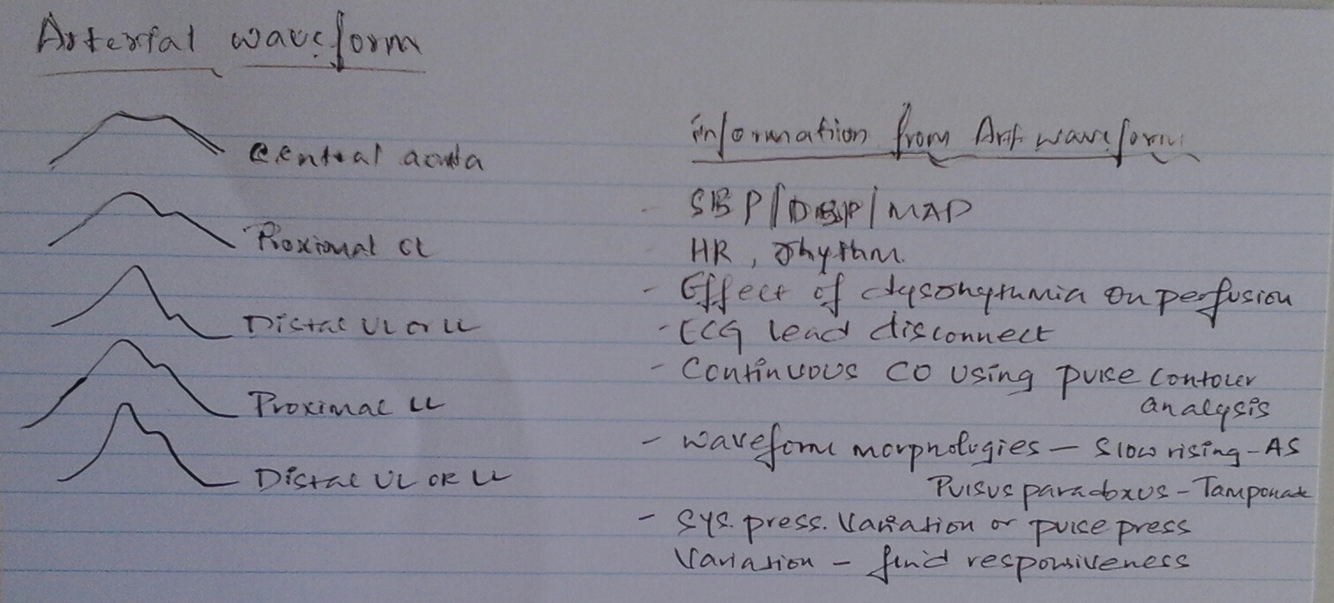 Arterial waveform
Central aorta
Proximal UL
Distal UL or LL
Proximal LL
Distal UL OR LL
information from Art waveform
- SBP/DBP/MAP
HR, rhythm.
- Effect of dysrhythmia on perfusion
- ECG lead disconnect
- Continuous CO using pulse contour
analysis
- waveform morphologies – Slow rising - AS
Pulsus paradoxus - Tamponade
- sys. press. Variation or pulse press
Variation – fluid responsiveness